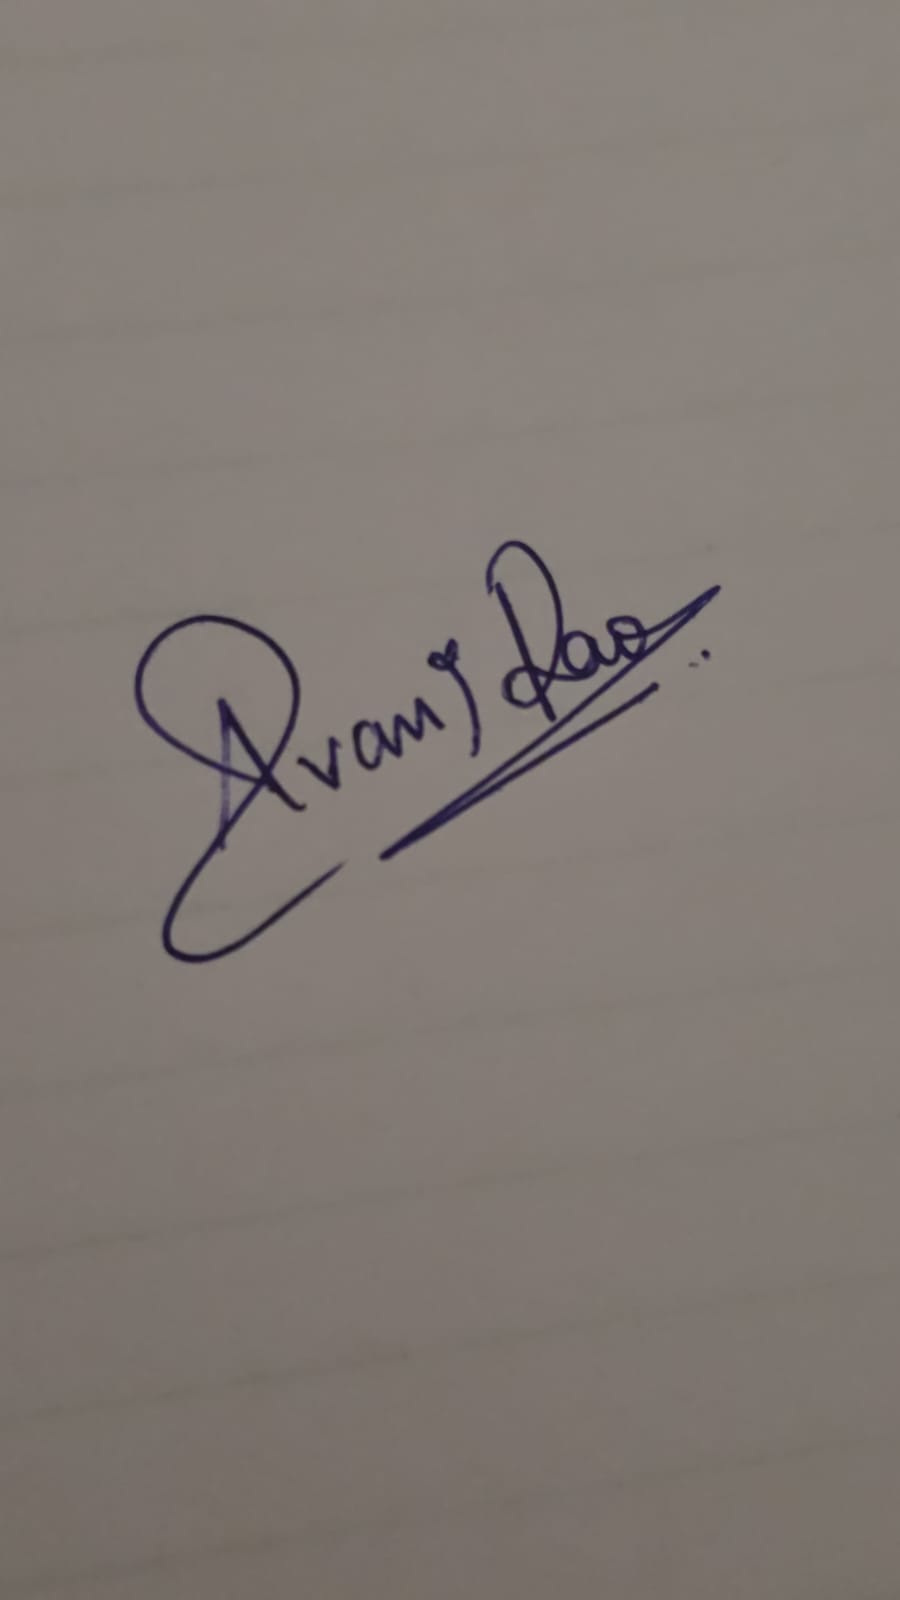 Avani Rao